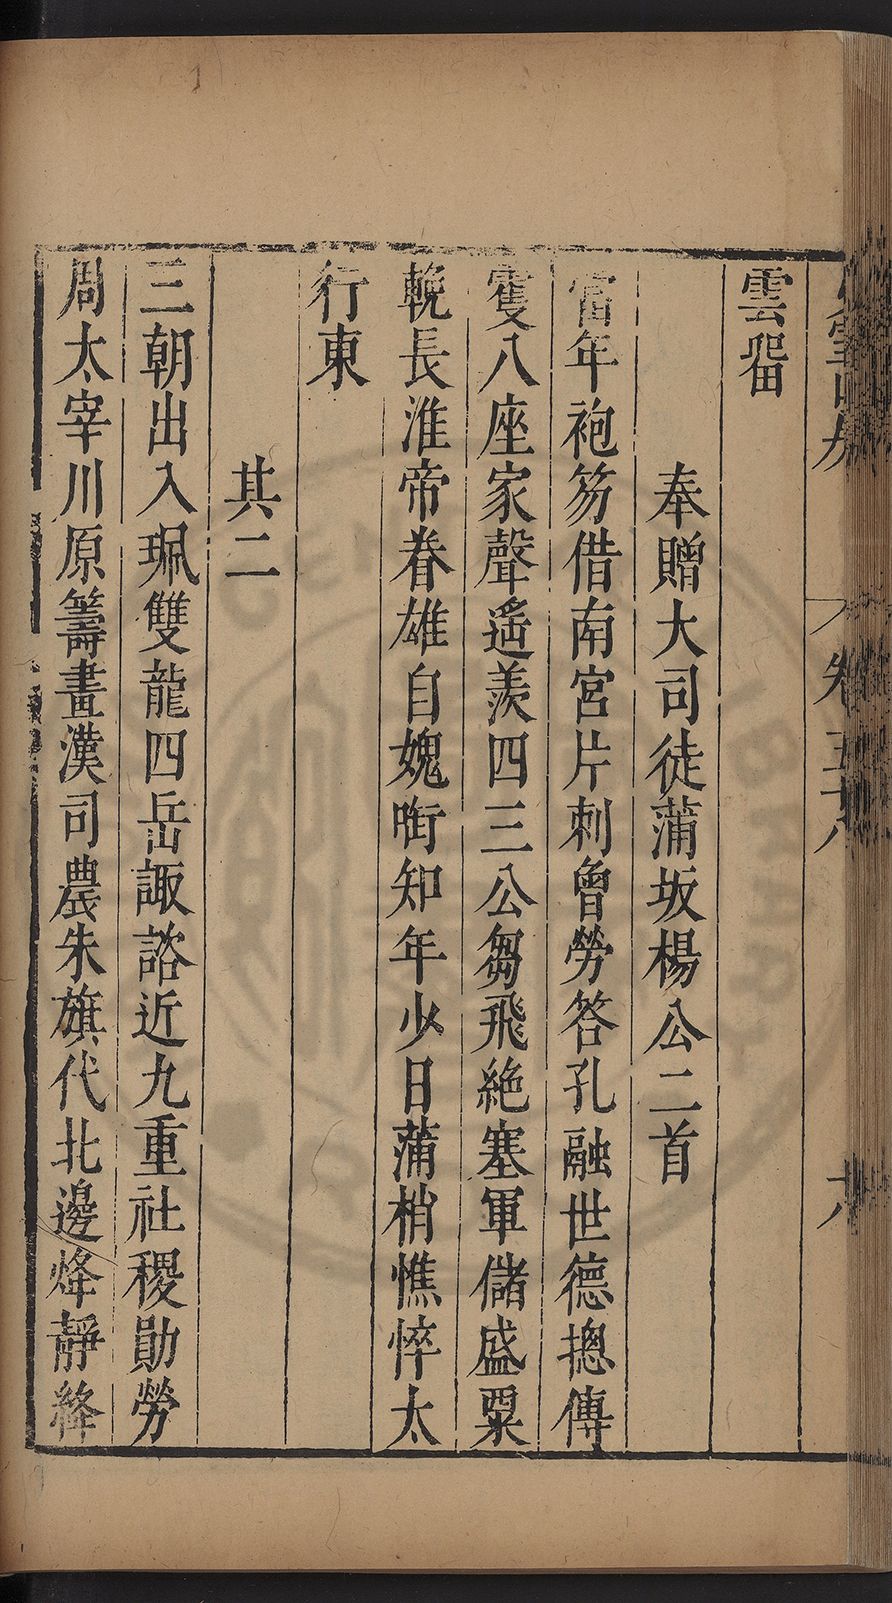 卷五十八
雲留
奉贈大司徒蒲坂楊公二首
當年袍笏借南宮片刺曾勞答孔融世德摠傳
隻八座家聲遙羨四三公芻飛絶塞軍儲盛粟
輓長淮帝眷雄自媿銜知年少日蒲梢憔悴太
行東
其二
三朝出入珮雙龍四岳諏諮近九重社稷勛勞
周太宰川原籌畫漢司農朱旗代北邊烽靜絳